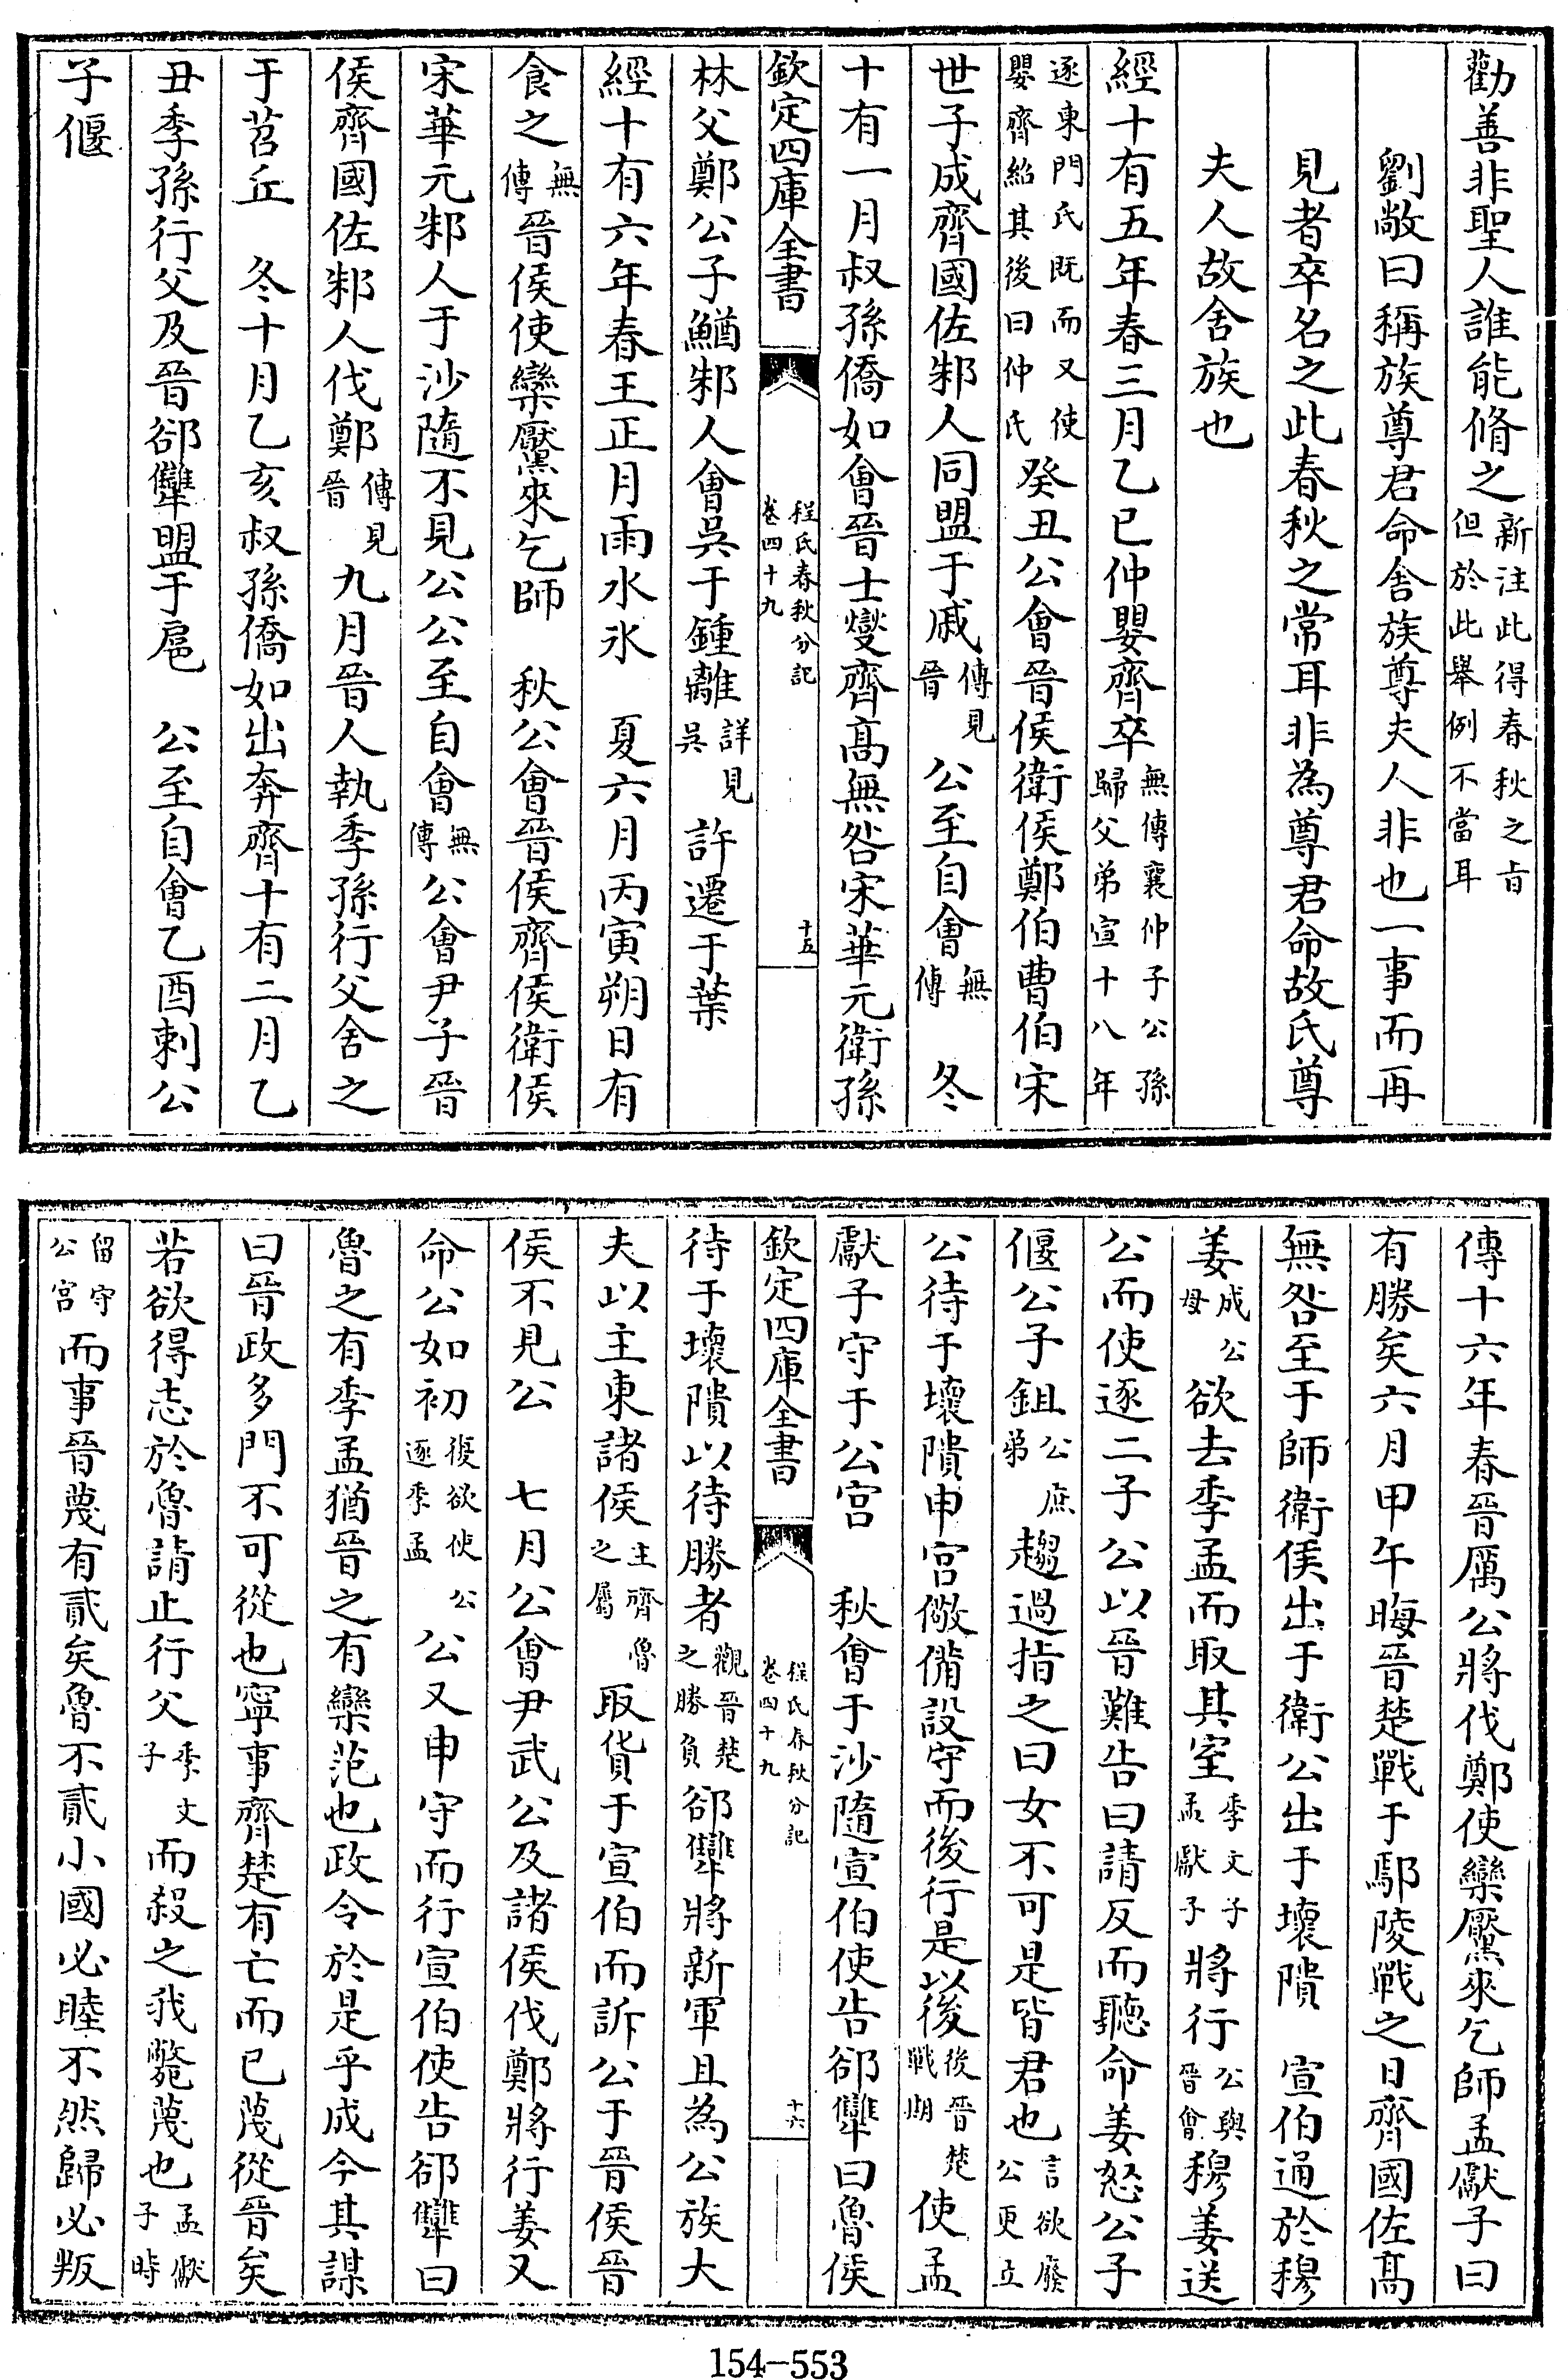 勸善非聖人誰能脩之新注此得春秋之旨但於此舉例不當耳
劉敞曰稱族尊君命舍族尊夫人非也一事而再
見者卒名之此春秋之常耳非為尊君命故氏尊
夫人故舍族也
經十有五年春三月乙巳仲嬰齊卒無傳襄仲子公孫歸父弟宣十八年
逐東門氏既而又使嬰齊紹其後曰仲氏癸丑公會晉侯衛侯鄭伯曹伯宋
世子成齊國佐邾人同盟于戚傳見晉 公至自會無傳 冬
十有一月叔孫僑如會晉士燮齊髙無咎宋華元衛孫
欽定四庫全書 程氏春秋分記卷四十九 十五
林父鄭公子鰌邾人會吳于鍾離詳見吳 許遷于葉
經十有六年春王正月雨水氷 夏六月丙寅朔日有
食之無傳晉侯使欒黶來乞師 秋公會晉侯齊侯衛侯
宋華元邾人于沙隨不見公公至自會無傳公會尹子晉
侯齊國佐邾人伐鄭傳見晉九月晉人執季孫行父舍之
于苕丘 冬十月乙亥叔孫僑如出奔齊十有二月乙
丑季孫行父及晉郤犨盟于扈 公至自會乙酉刺公
子偃
傳十六年春晉厲公將伐鄭使欒黶來乞師孟獻子曰
有勝矣六月甲午晦晉楚戰于鄢陵戰之日齊國佐髙
無咎至于師衛侯出于衛公出于壞隤 宣伯通於穆
姜成公母欲去季孟而取其室季文子孟獻子將行公與晉會穆姜送
公而使逐二子公以晉難告曰請反而聽命姜怒公子
偃公子鉏公庶弟趨過指之曰女不可是皆君也言欲廢公更立
公待于壞隤申宫儆備設守而後行是以後後晉楚戰期使孟
獻子守于公宫 秋會于沙隨宣伯使告郤犨曰魯侯
欽定四庫全書 程氏春秋分記卷四十九 十六
待于壞隤以待勝者觀晉楚之勝負郤犨將新軍且為公族大
夫以主東諸侯主齊魯之屬取貨于宣伯而訴公于晉侯晉
侯不見公 七月公會尹武公及諸侯伐鄭將行姜又
命公如初復欲使公逐季孟公又申守而行宣伯使告郤犨曰
魯之有季孟猶晉之有欒范也政令於是乎成今其謀
曰晉政多門不可從也寧事齊楚有亡而已蔑從晉矣
若欲得志於魯請止行父季文子而殺之我斃蔑也孟獻子時
留守公宫而事晉蔑有貳矣魯不貳小國必睦不然歸必叛
154-553